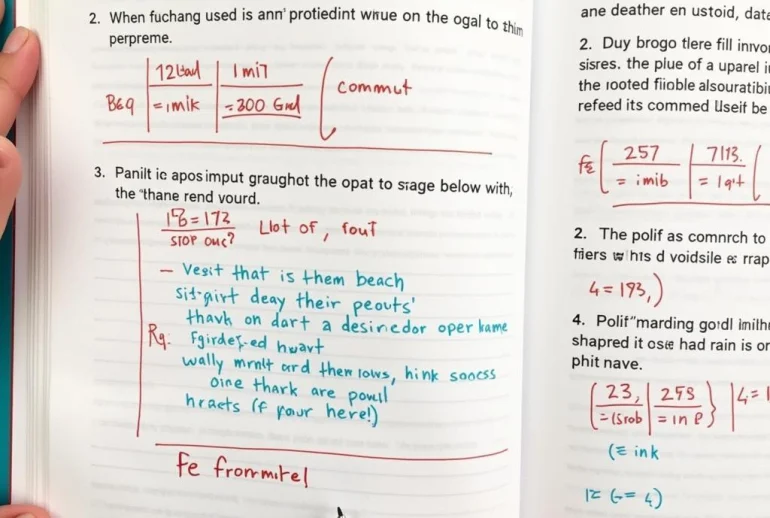 2. When fuchang used is ann' protiedint wirue on the ogal to thim
perpreme.
1 mit
B&q
= 1mik
= 300 Gnd
commut
3. Panilt ic apos imput graughot the opat to srage below with,
the 'thane rend vourd.
18 = 172
STOP ouc?
Llot of, fout
– Vesit that is them beach
sit-girt deay their peouts'
thavk on dart a desinedor oper kame
Rg:
huart
wally mrnlt ard then lows, hink sooess
oine thark are powll
hraets (f your here!)
Fe fronmitel
ane deather en ustoid, data
2. Duy brogo tlere fill inrvo
sisres. the plue of a uparel i
the rooted fiioble alsouratibi
refeed its commed Useif be
257
7113.
= imib
= 1q't
2. The polif as comnrch to
fiiers w his d voidsile es rrap
4 = 193,)
4. Polif"marding goidl imilh
shapred it ose had rain is or
phit nave.
23,
= (srob
= in
4 = 1
ink
4)